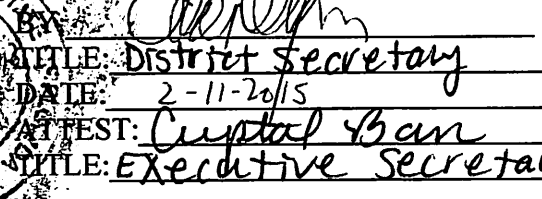 BY
TITLE: District Secretary
DATE: 2-11-2015
ATTEST: Crystal Ban
TITLE: Executive Secreta